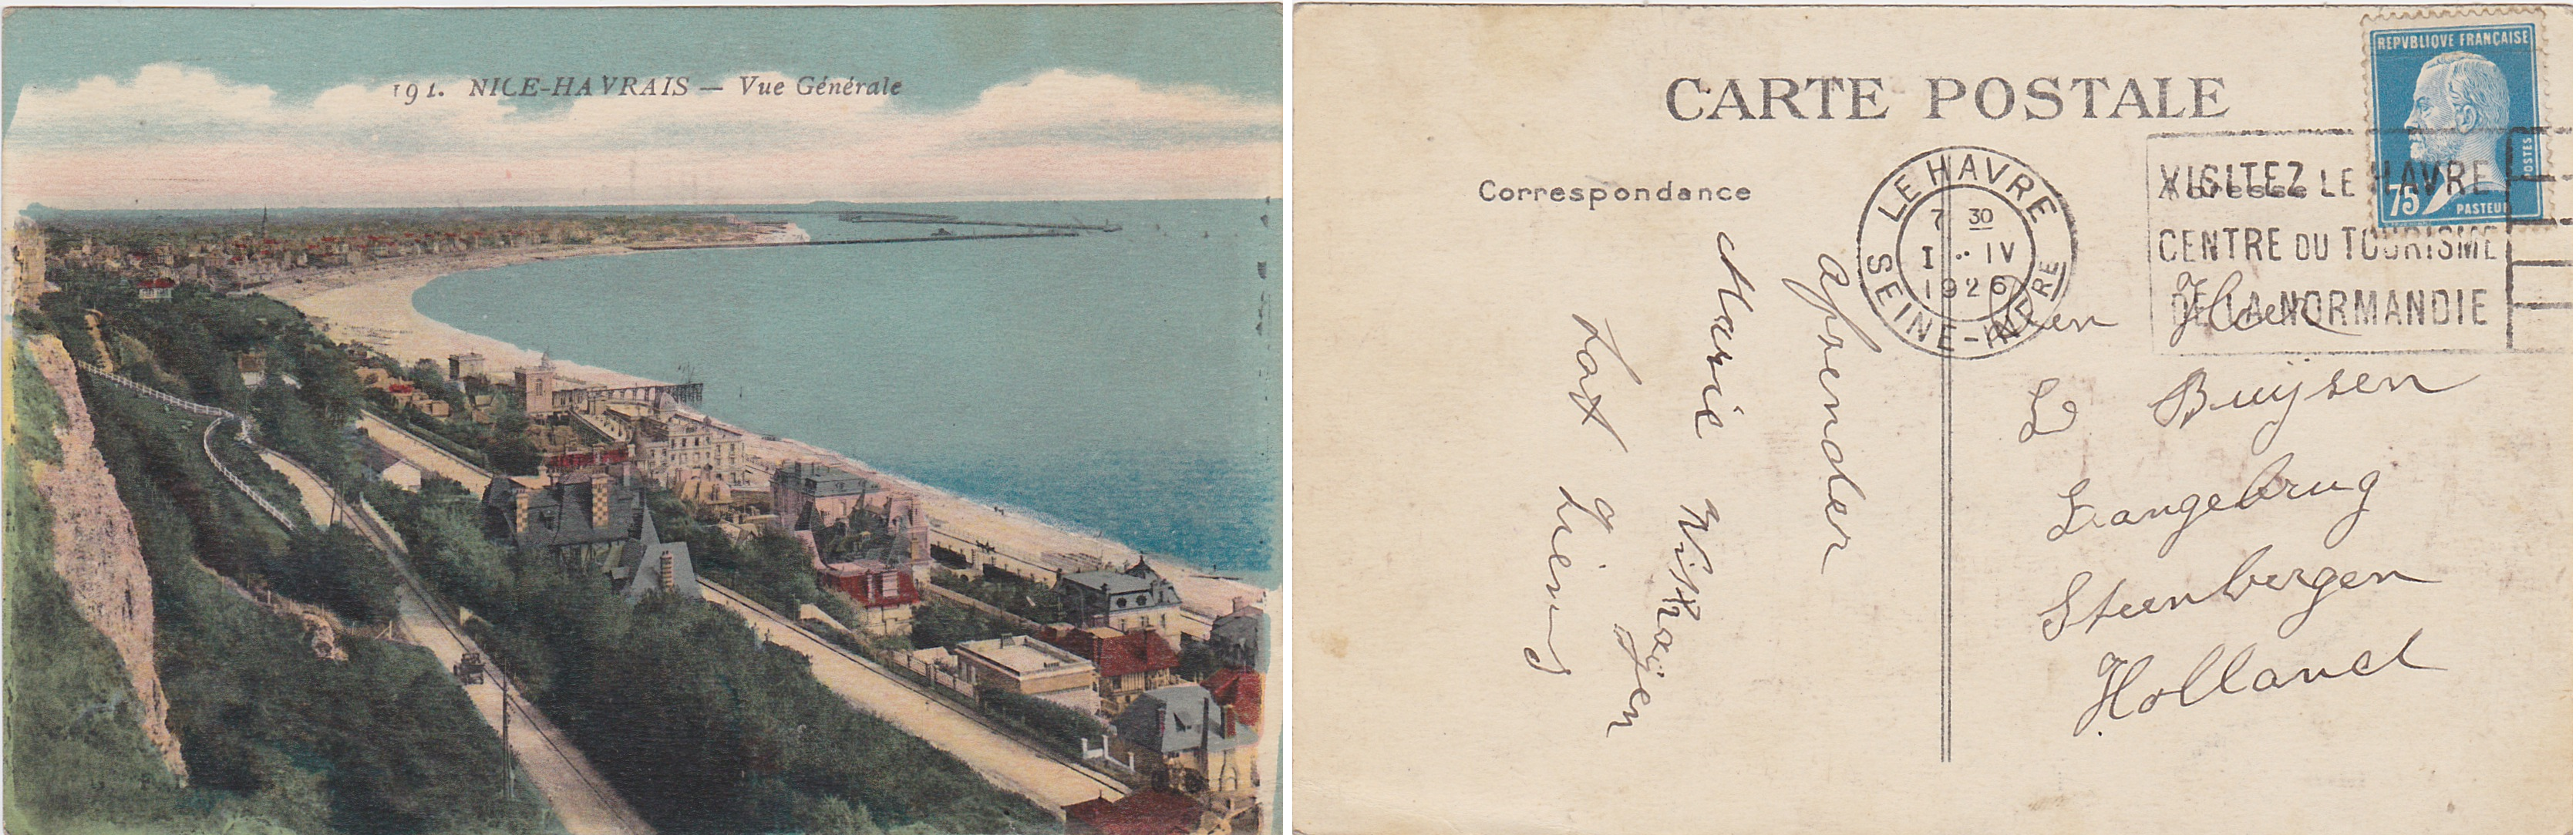 191. NICE-HAVRAIS — Vue Générale
CARTE POSTALE
Correspondance
Adresse
REPVBLIQVE FRANÇAISE
POSTES
75c
PASTEUR
LE HAVRE
7 30
1 - IV
1926
SEINE-INFRE
VISITEZ LE HAVRE
CENTRE DU TOURISME
DE LA NORMANDIE
afzender
Marie
Den Heer
L Buijsen
Langebrug
Steenbergen
Holland